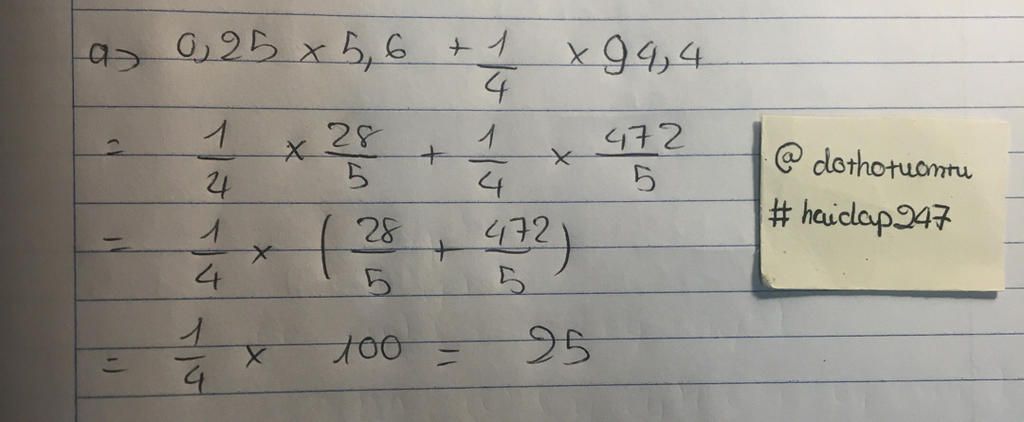 a) 0,25 x 5,6 + 1/4 x 94,4
= 1/4 x 28/5 + 1/4 x 472/5
= 1/4 x (28/5 + 472/5)
= 1/4 x 100 = 25
@ dothotuantu
# haidap247